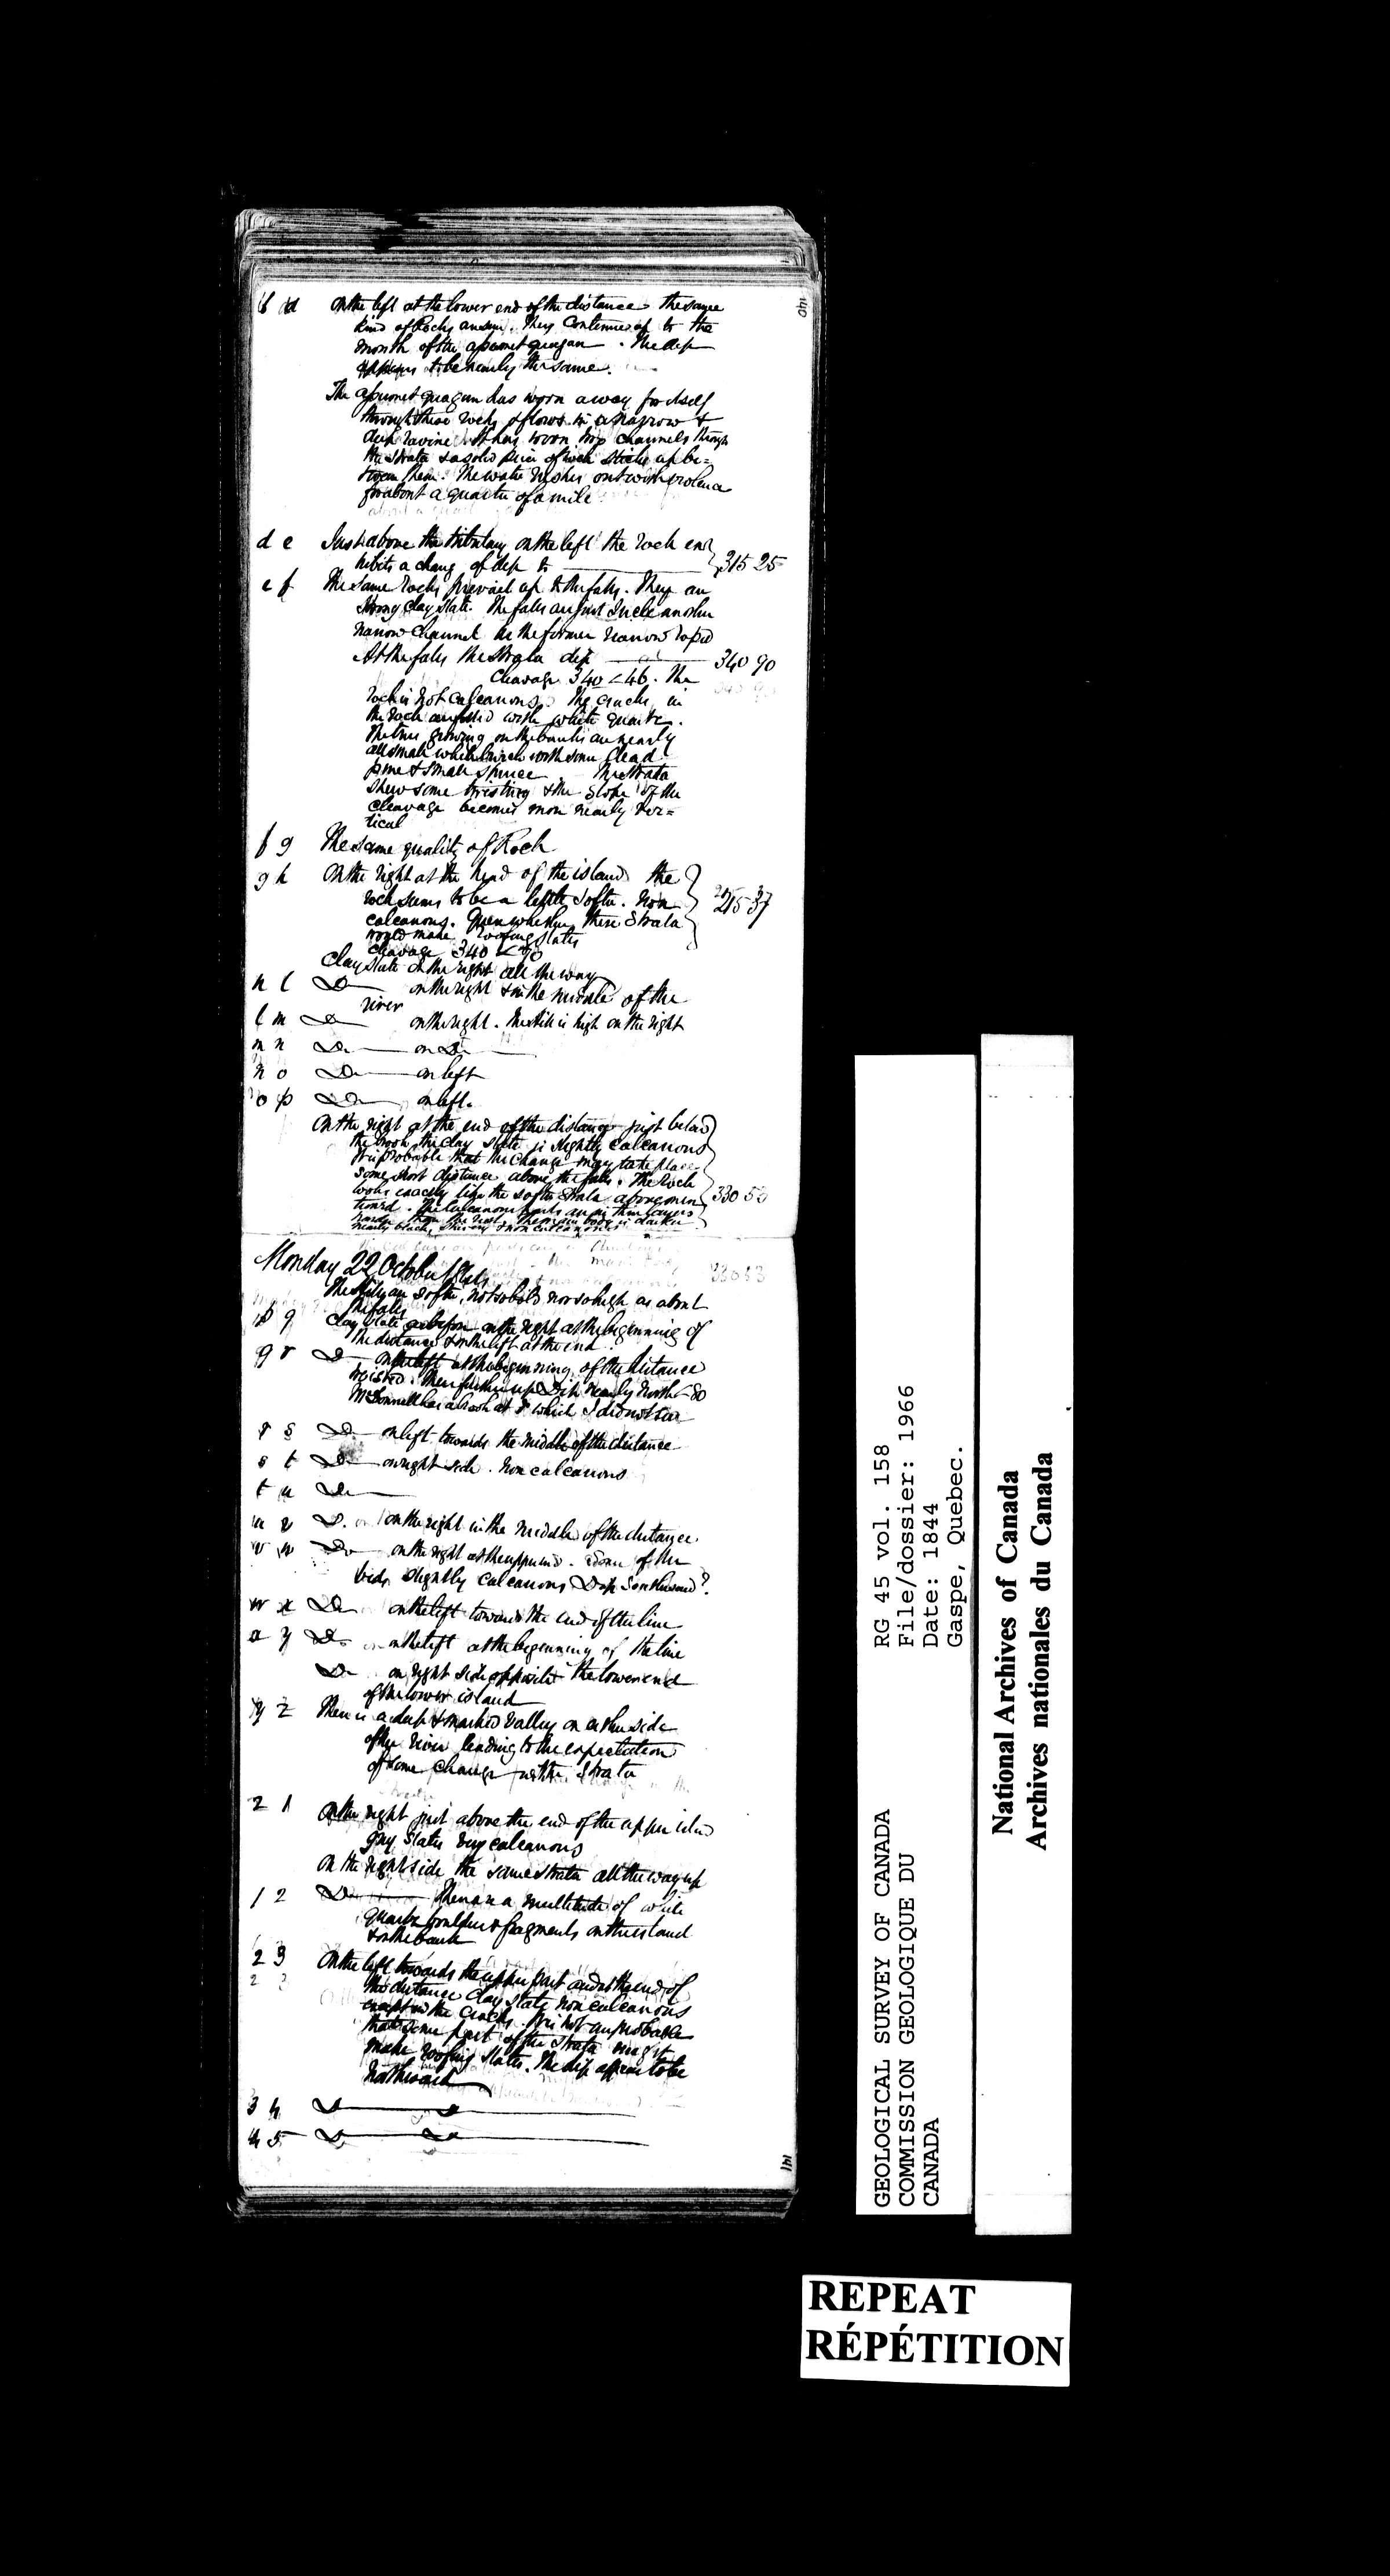 140
b d On the left at the lower end of the distance the same
kind of Rocks are seen. They continue up to the
mouth of the apsemetquagan. The dip
appears to be nearly the same.
The apsemetquagan has worn a way for itself
through these rocks & flows in a narrow &
deep ravine. It has worn two channels through
the strata & a solid piece of rock sticks up be=
tween them. The water rushes out with violence
for about a quarter of a mile
d e Just above the tributary on the left the rock exh
hibits a change of dip to 315 25
e f The same rocks prevail up to the falls. They are
strong clay slate. The falls are just such another
narrow channel as the former narrow rapid
At the falls the strata dip 340 90
Cleavage 340 < 46. The
rock is not calcareous. The cracks in
the rock are filled with white quartz.
The trees growing on the banks are nearly
all small white birch with some dead
pine & small spruce. The strata
shew some twisting & the slope of the
cleavage becomes more nearly ver=
tical
f g The same quality of Rock
g h On the right at the head of the island the
rock seems to be a little softer. Non
calcareous. Quere whether these strata 215 37
would make roofing slates
cleavage 340 < 90
Clay slate on the right all the way
h l Do on the right & in the middle of the
river
l m Do on the right. The hill is high on the right
m n Do on Do
n o Do on left
o p Do on left.
On the right at the end of the distance just below
the brook the clay slate is slightly calcareous
It is probable that the change may take place
some short distance above the falls. The rock
looks exactly like the softer strata above men 330 53
tioned. The calcareous parts are in thin layers
harder than the rest. The main body is darker
nearly black, shivery & non calcareous
Monday 22 October 1844
The hills are softer, not so bold nor so high as about
the falls
p q Clay slate as before on the right at the beginning of
the distance & on the left at the end.
q r Do on the left at the beginning of the distance
twisted. Then further up Dip nearly North < 80
McDonnell has a brook at r which I did not see
r s Do on left towards the middle of the distance
s t Do on right side. Non calcareous
t u Do
u v Do on the right in the middle of the distance.
v w Do on the right at the upper end. Some of the
beds slightly calcareous Dip Southward?
w x Do on the left towards the end of the line
x y Do on the left at the beginning of the line
Do on right side opposite the lower end
of the lower island
y z There is a deep & marked valley on either side
of the river leading to the expectation
of some change in the strata
z 1 On the right just above the end of the upper island
gray slates very calcareous
On the right side the same strata all the way up
1 2 Do There are a multitude of white
quartz boulders & fragments on the island
& on the bank
2 3 On the left towards the upper part and at the end of
the distance clay slate non calcareous
except in the cracks. It is not improbable
that some part of the strata might
make roofing slates. The dip appears to be
Northward
3 4 Do Do
4 5 Do Do
141
GEOLOGICAL SURVEY OF CANADA
COMMISSION GEOLOGIQUE DU
CANADA
RG 45 vol. 158
File/dossier: 1966
Date: 1844
Gaspe, Quebec.
National Archives of Canada
Archives nationales du Canada
REPEAT
RÉPÉTITION